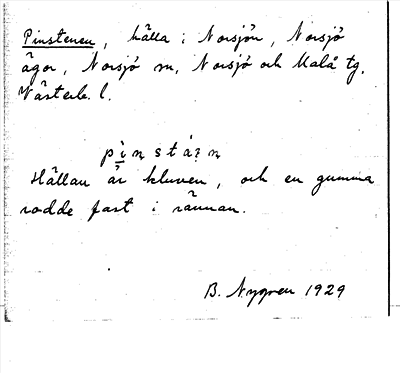 Pinstenen, hälla i Norsjön, Norsjö
ägor, Norsjö sn, Norsjö och Malå tg,
Västerb. l.
Hällan är kluven, och en gumma
rodde fast i rännan.
B. Nygren 1929